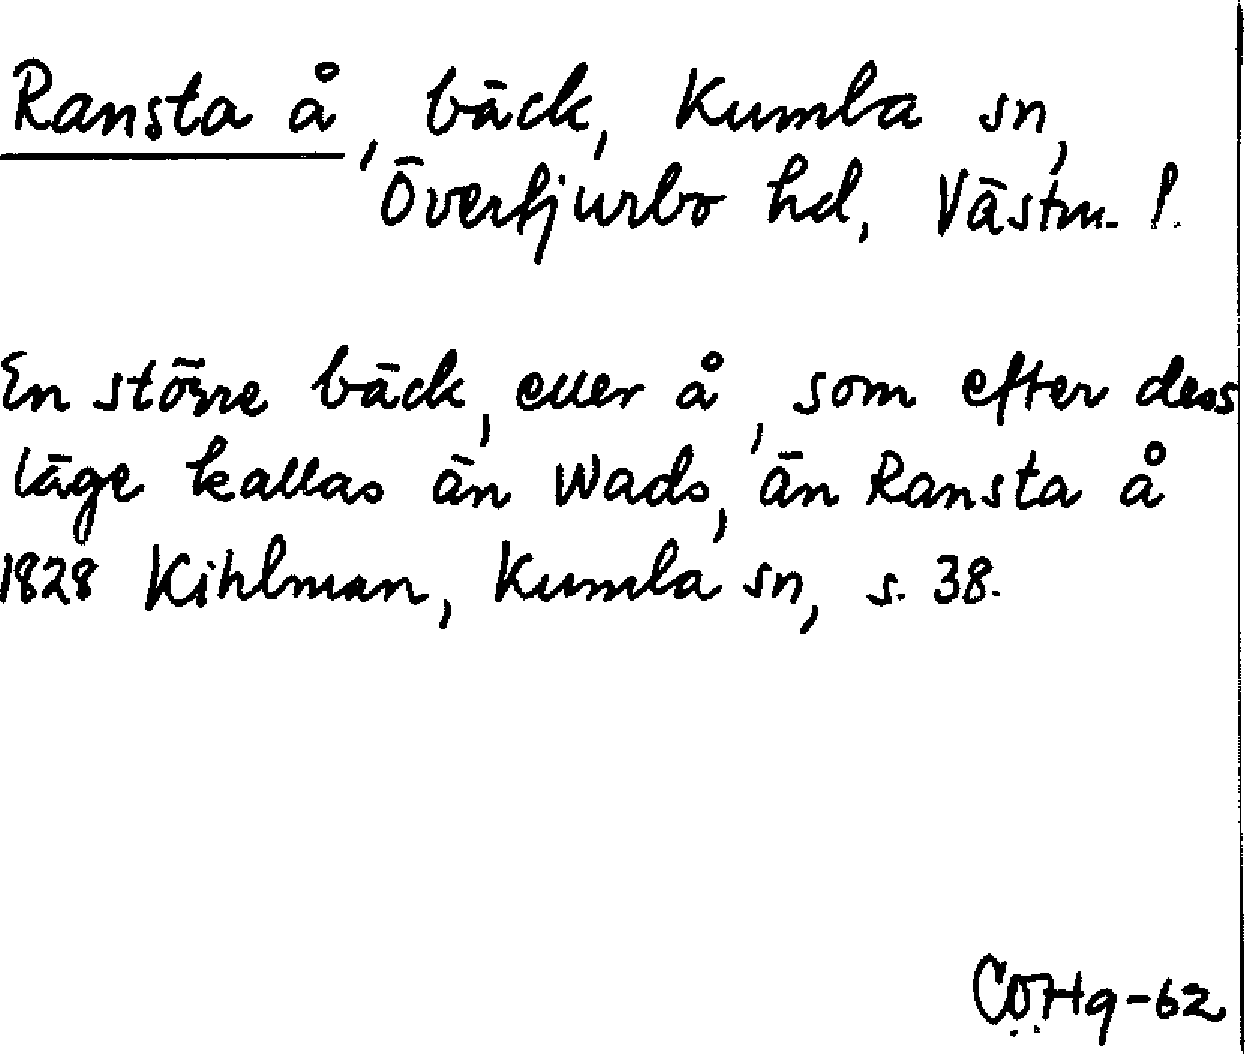 Ransta å, bäck, Kumla sn,
Övertjurbo hd, Västm. l.
En större bäck, eller å, som efter dess
läge kallas än Wads, än Ransta å
1828 Kihlman, Kumla sn, s. 38.
COHg-62